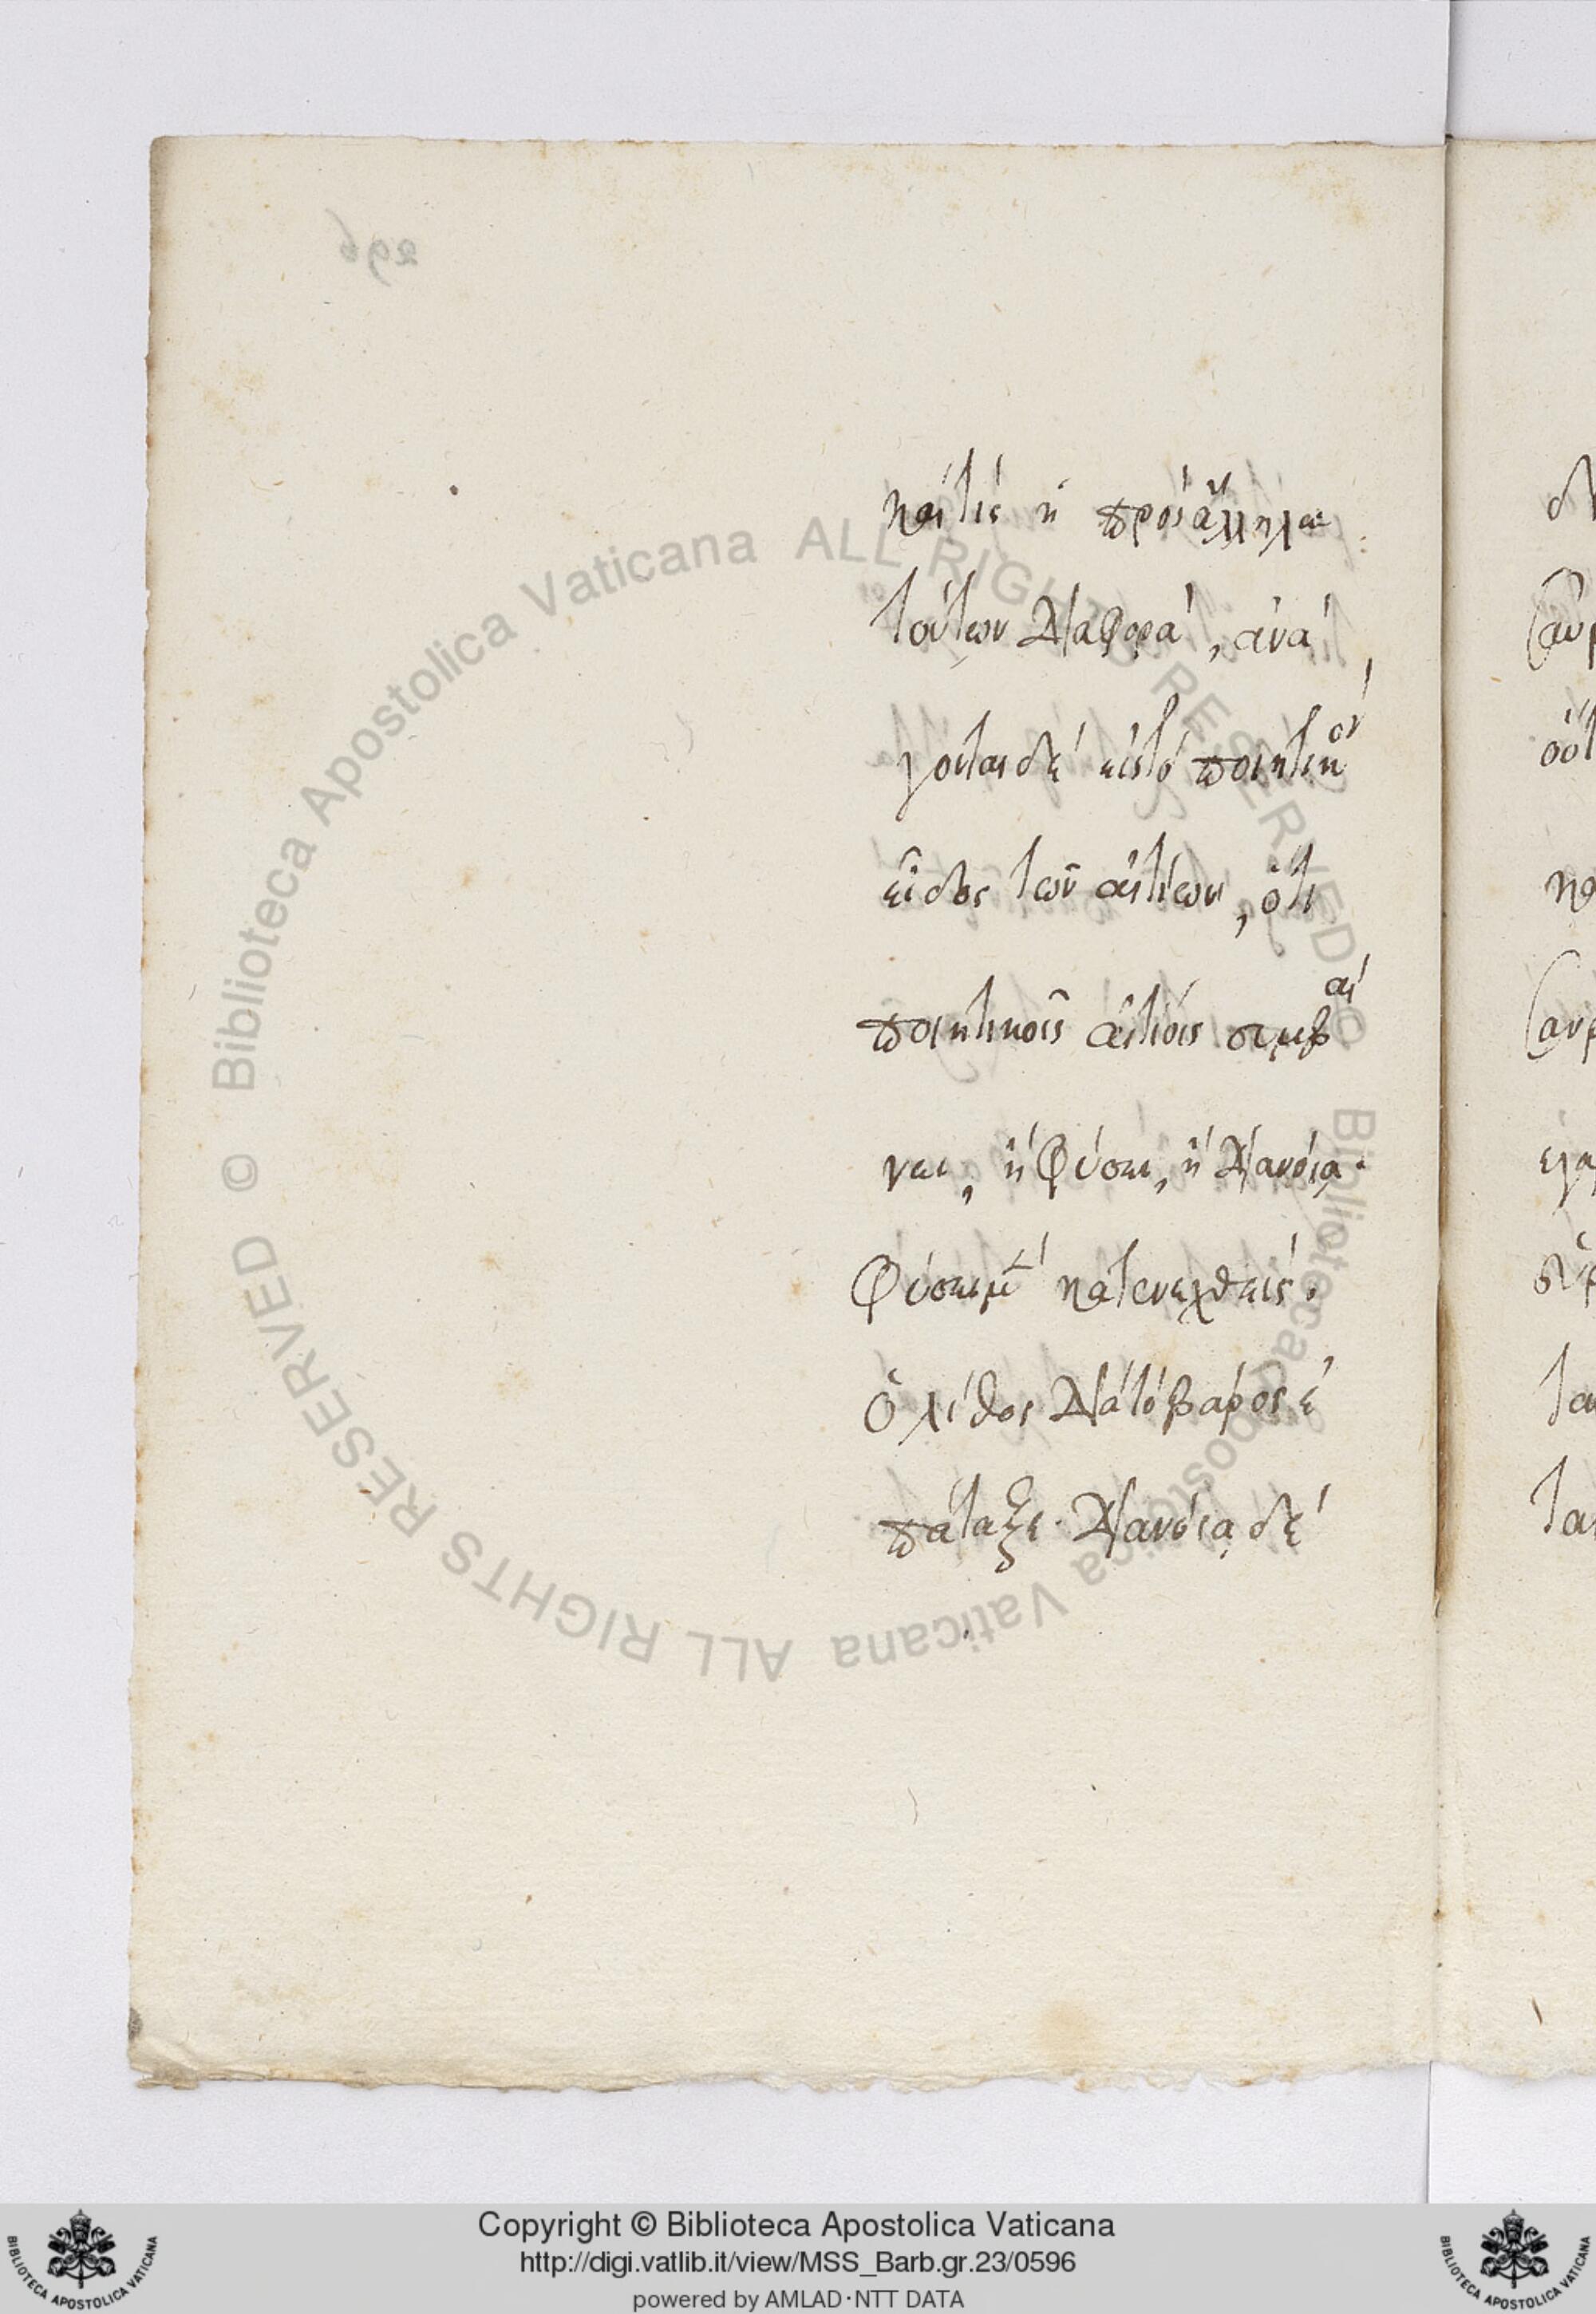 καὶ τίς ἡ πρὸς ἄλληλα
τούτων διαφορά, ἀνά
γονται δὲ εἰς τὸ ποιητικὸν
εἶδος τῶν αἰτίων, ὅτι
ποιητικοῖς αἰτίοις συμβαί
νει, ἢ φύσει, ἢ διανοίᾳ.
φύσει μὲν κατενεχθεὶς.
ὁ λίθος διὰ τὸ βάρος ἐ
πάταξε. διανοίᾳ δὲ
296
© Biblioteca Apostolica Vaticana ALL RIGHTS RESERVED
© Biblioteca Apostolica Vaticana ALL RIGHTS RESERVED
Copyright © Biblioteca Apostolica Vaticana
http://digi.vatlib.it/view/MSS_Barb.gr.23/0596
powered by AMLAD·NTT DATA
BIBLIOTECA APOSTOLICA VATICANA
BIBLIOTECA APOSTOLICA VATICANA